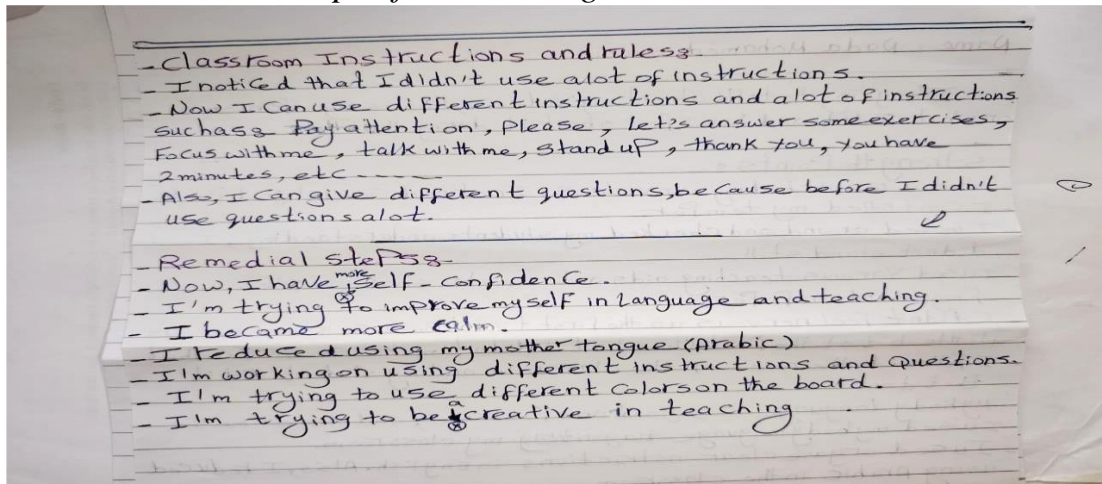 - Classroom Instructions and rules:
- I noticed that I didn't use alot of instructions.
- Now I can use different instructions and alot of instructions
such as: Pay attention, Please, let's answer some exercises,
Focus with me, talk with me, stand up, thank you, you have
2 minutes, etc -----
- Also, I can give different questions, because before I didn't
use questions alot.
- Remedial steps:-
- Now, I have more self-confidence.
- I'm trying to improve myself in Language and teaching.
- I became more calm.
- I reduced using my mother tongue (Arabic)
- I'm working on using different instructions and Questions.
- I'm trying to use different colors on the board.
- I'm trying to be a creative in teaching